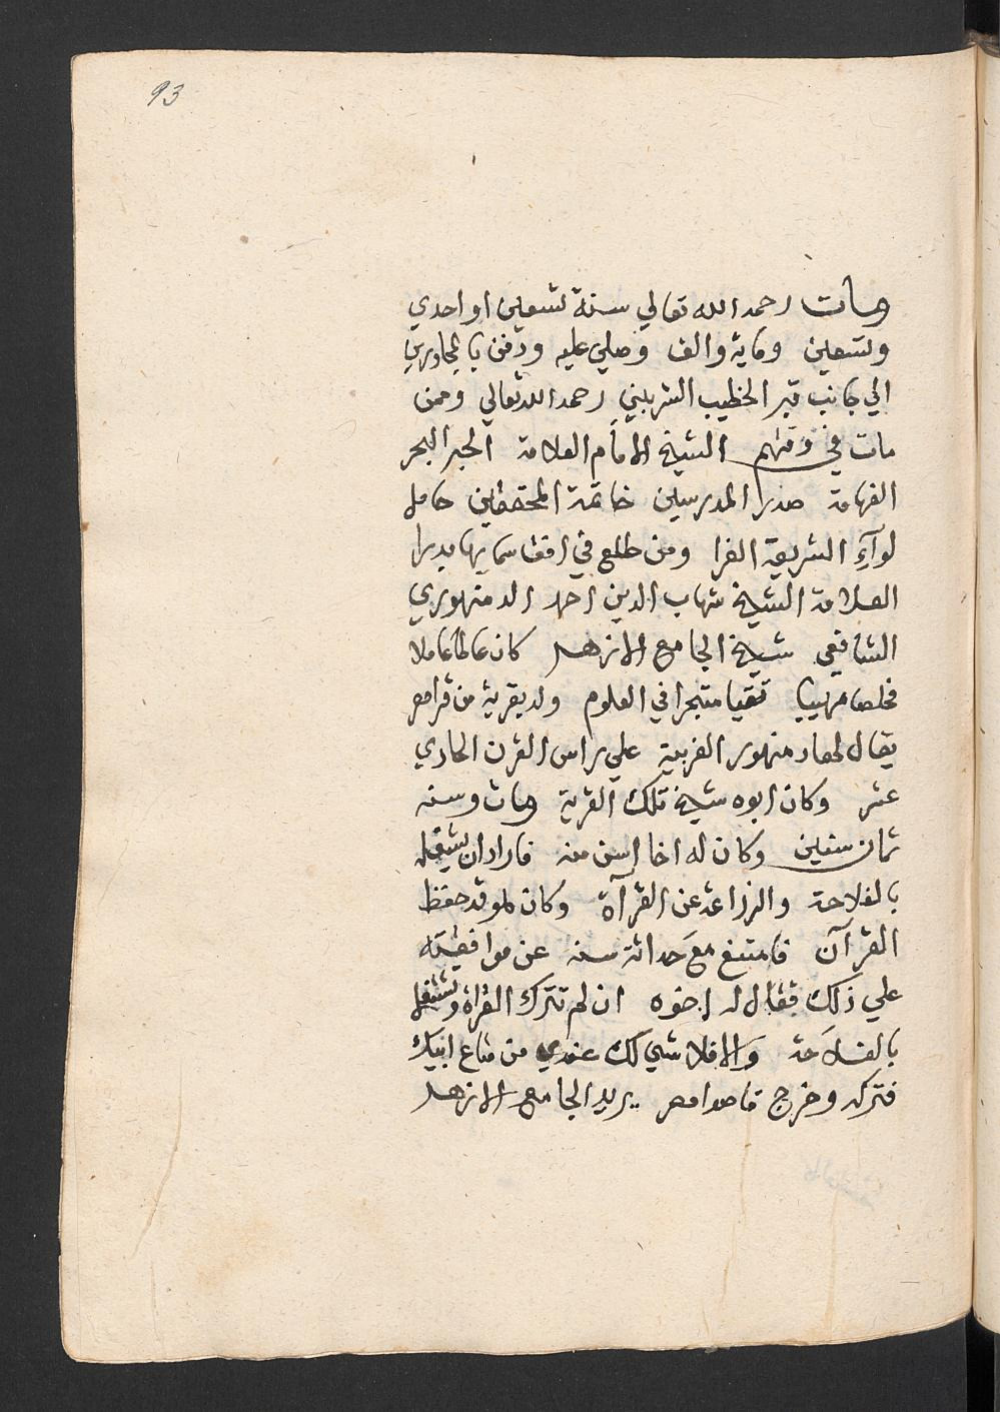 93
ومات رحمه الله تعالي سنة تسعين او احدي
وتسعين وماية والف وصلي عليه ودفن بالمجاورين
الي جانب قبر الخطيب الشربيني رحمه الله تعالي وممن
مات في وقتهم الشيخ الامام العلامة الحبر البحر
الفهامة صدر المدرسين خاتمة المحققين حامل
لوآءِ الشريعة الغرا ومن طلع في افق سمايها بدرا
العلامة الشيخ شهاب الدين احمد الدمنهوري
الشافعي شيخ الجامع الازهر كان عالما عاملا
مخلصا مهيبا تقيا متبحرا في العلوم ولد بقرية من قرا مصر
يقال لها دمنهور الغربية علي راس القرن الحادي
عشر وكان ابوه شيخ تلك القرية ومات وسنه
ثمان سنين وكان له اخا اسن منه فاراد ان يشغله
بالفلاحة والزراعة عن القرآة وكان هو قد حفظ
القرآن فامتنع مع حداثة سنه عن موافقته
علي ذلك فقال له اخوه ان لم تترك القراة وتشتغل
بالفلاحة والا فلا شي لك عندي من متاع ابيك
فتركه وخرج قاصدا مصر يريد الجامع الازهر